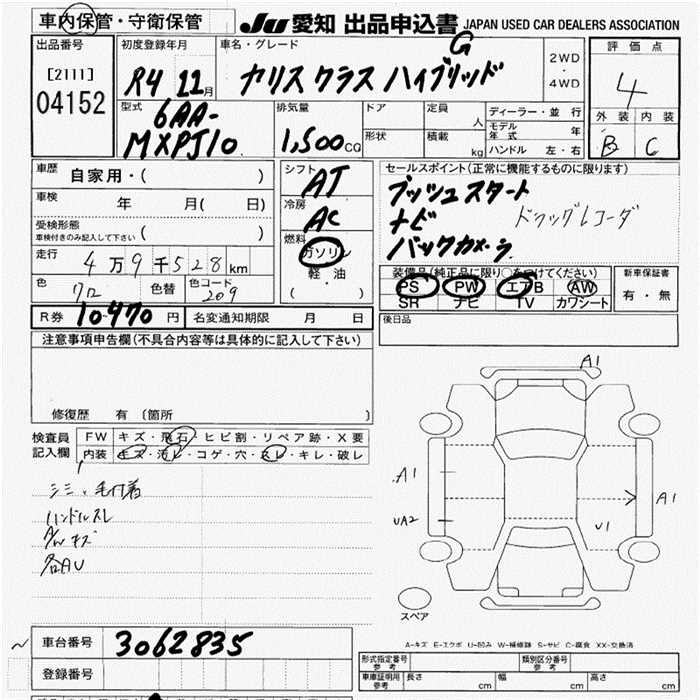 車内保管・守衛保管
JU 愛知 出品申込書 JAPAN USED CAR DEALERS ASSOCIATION
出品番号
[2111]
04152
初度登録年月
R4 12月
車名・グレード
ヤリス クラス ハイブリッド G
2WD
・
4WD
評価点
4
外装 内装
B C
型式
6AA-
MXPJ10
排気量
1,500CC
ドア
定員
人
形状
積載
kg
ディーラー・並行
モデル年式 年
ハンドル 左・右
車歴
自家用・( )
車検
年 月( 日)
受検形態
車検付きのみ記入して下さい ( )
走行
4万9千528km
色
クロ
色替
色コード
209
シフト
AT
冷房
AC
燃料
ガソリン
軽・油
( )
セールスポイント(正常に機能するものに限ります)
プッシュスタート
ナビ ドラッグレコーダ
バックカメラ
装備品(純正品に限り○をつけてください)
PS PW エアB AW
SR ナビ TV カワシート
新車保証書
有・無
R券 10,470 円 名変通知期限 月 日
後日品
注意事項申告欄(不具合内容等は具体的に記入して下さい)
修復歴 有 〔箇所 〕
検査員
記入欄
FW キズ・飛石・ヒビ割・リペア跡・X要
内装 キズ・汚レ・コゲ・穴・スレ・キレ・破レ
シミ、毛付着
ハンドルスレ
A/Wキズ
各AU
A1
A1
UA2
A1
U1
スペア
A-キズ E-エクボ U-凹み W-補修跡 S-サビ C-腐食 XX-交換済
車台番号 3062835
登録番号
形式指定番号
参考
類別区分番号
参考
車庫証明用
参考
長さ cm 幅 cm 高さ cm